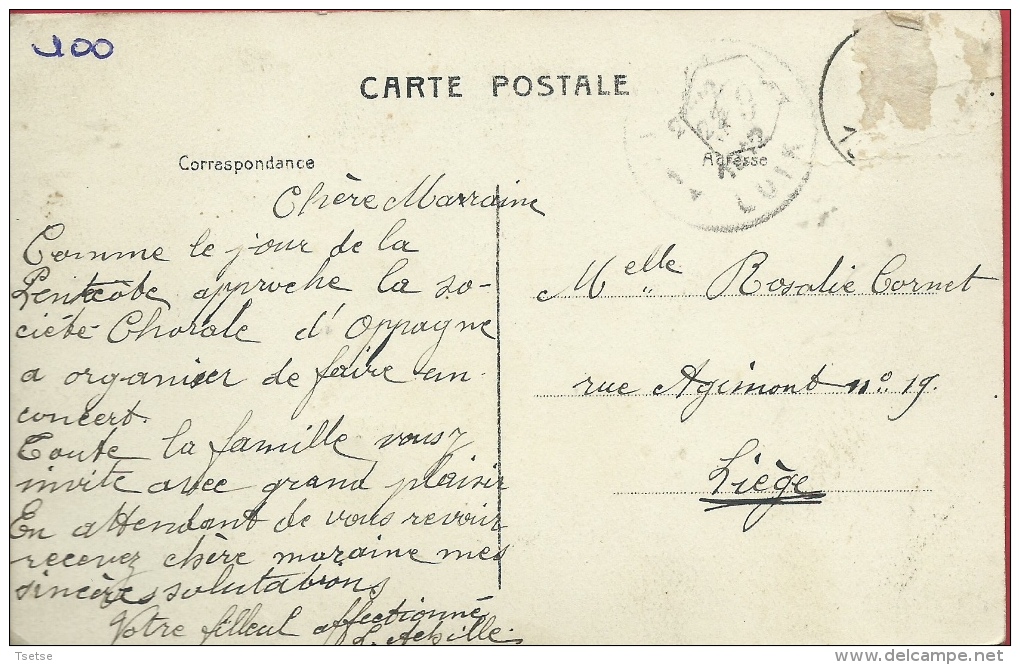 100
CARTE POSTALE
Correspondance
Adresse
LUIK
Chère Marraine
Comme le jour de la
Pentecôte approche la so-
ciété Chorale d'Oppagne
a organiser de faire un
concert.
Toute la famille vous y
invite avec grand plaisir
En attendant de vous revoir
recevez chère maraine mes
sincères salutations
Votre filleul affectionné
L. Achille.
Melle Rosalie Cornet
rue Agimont no 19.
Liège
Tsetse
© delcampe.net